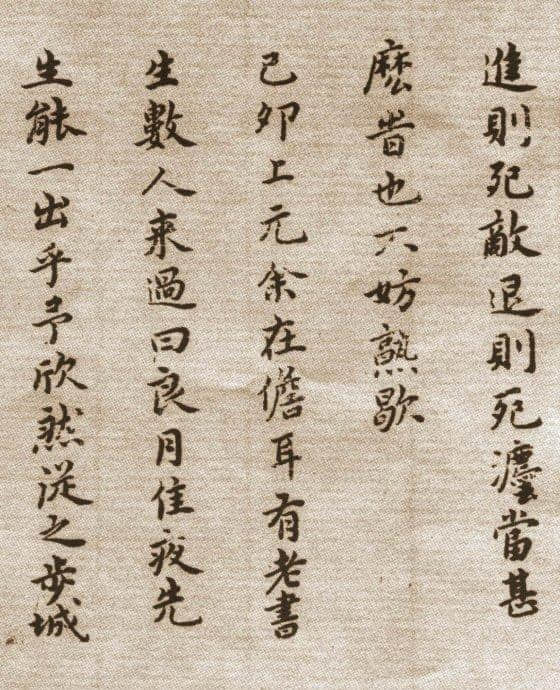 進則死敵退則死灋當甚
麽旹也不妨熟歇
己卯上元余在儋耳有老書
生數人來過曰良月佳夜先
生能一出乎予欣然從之步城